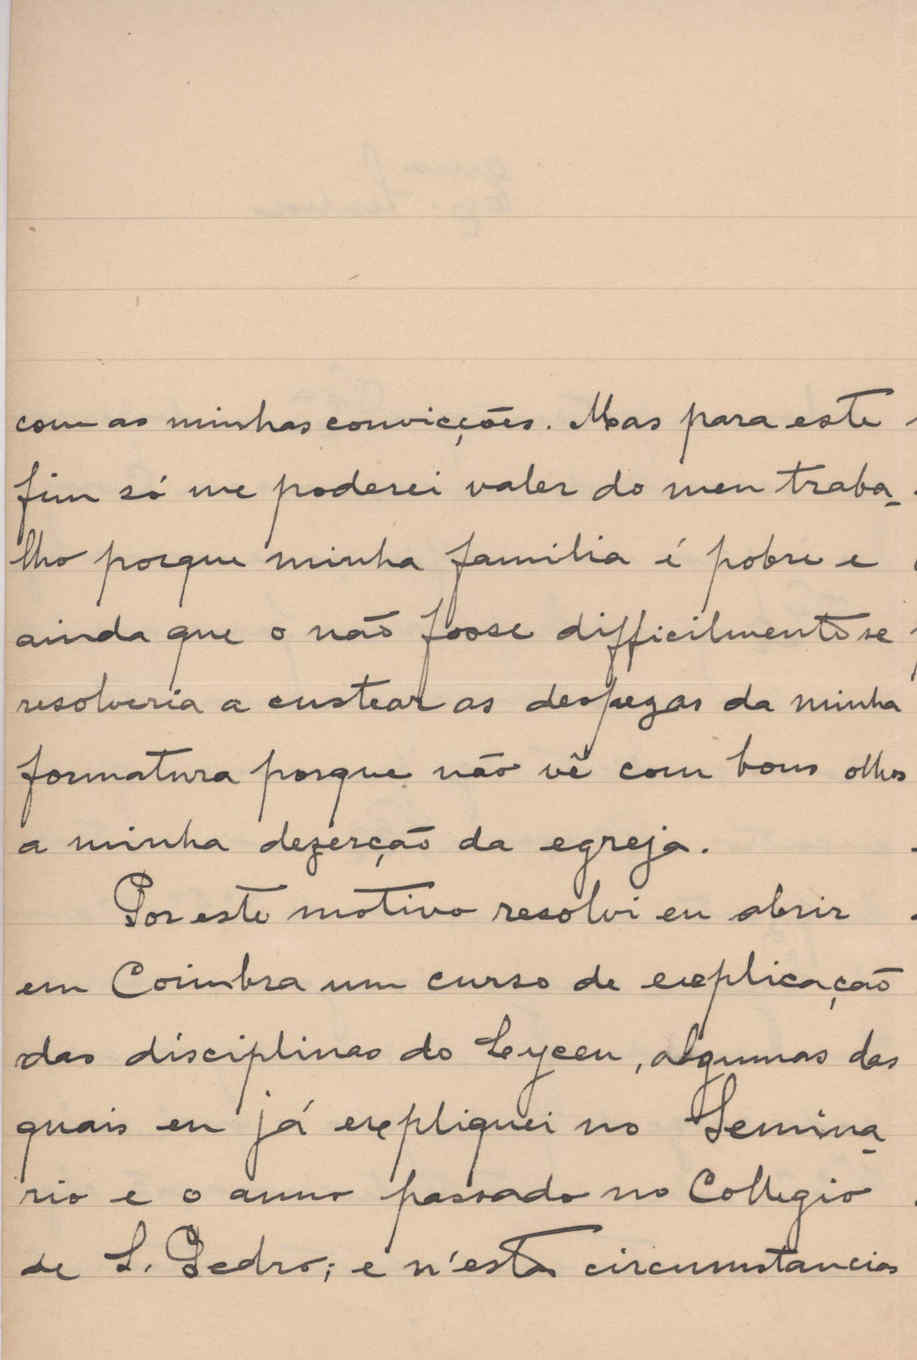 com as minhas convicções. Mas para este
fim só me poderei valer do meu traba-
lho porque minha familia é pobre e
ainda que o não fosse difficilmente se
resolveria a custear as despezas da minha
formatura porque não vê com bons olhos
a minha dezerção da egreja.
Por este motivo resolvi eu abrir
em Coimbra um curso de explicação
das disciplinas do Lyceu, algumas das
quais eu já expliquei no Semina-
rio e o anno passado no Collegio
de S. Pedro; e n'estas circumstancias